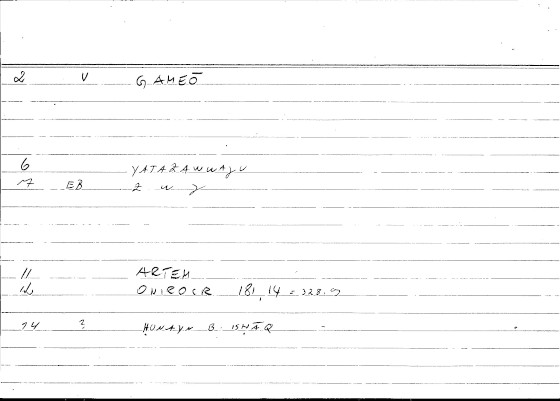 2 V GAMEŌ
6 YATAZAWWAǧU
7 EB Z W ǧ
11 ARTEM
12 ONIROCR 181,14 = 328.9
14 ? ḤUNAYN B. ISḤĀQ